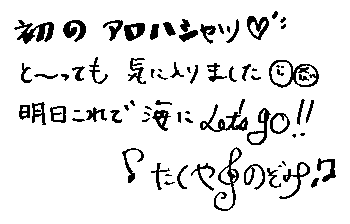 初の アロハシャツ♡
と〜っても 気に入りました☺☺
明日これで 海に Let's go!!
♪たくや𝄞のぞみ♫